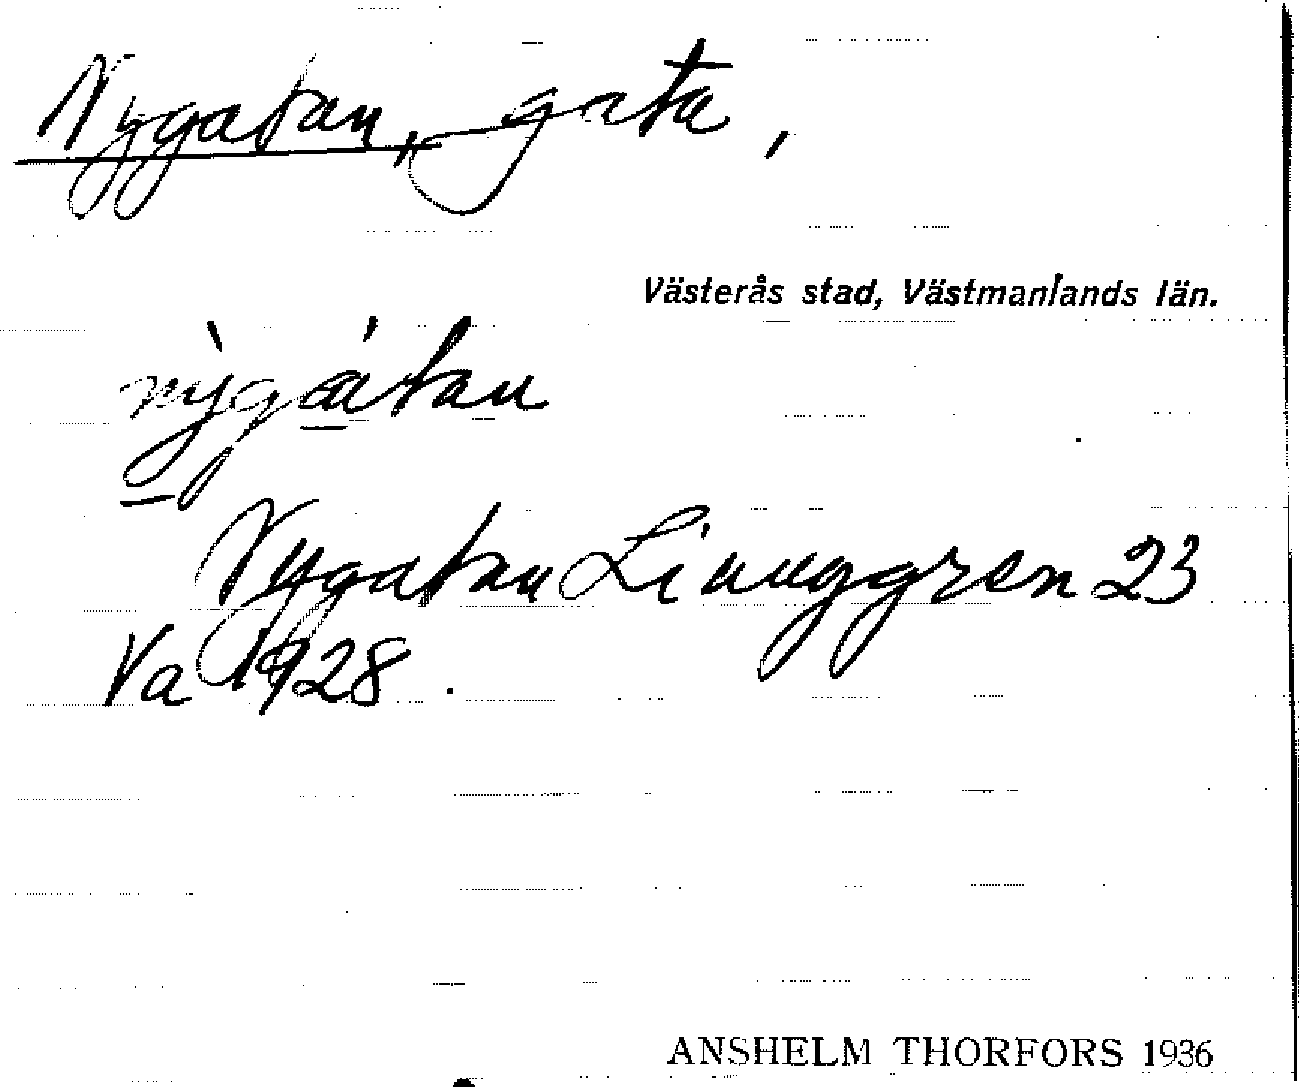 Nygatan, gata,
Västerås stad, Västmanlands län.
nỳgátan
Nygatan Linnggren 23
Va 1928.
ANSHELM THORFORS 1936